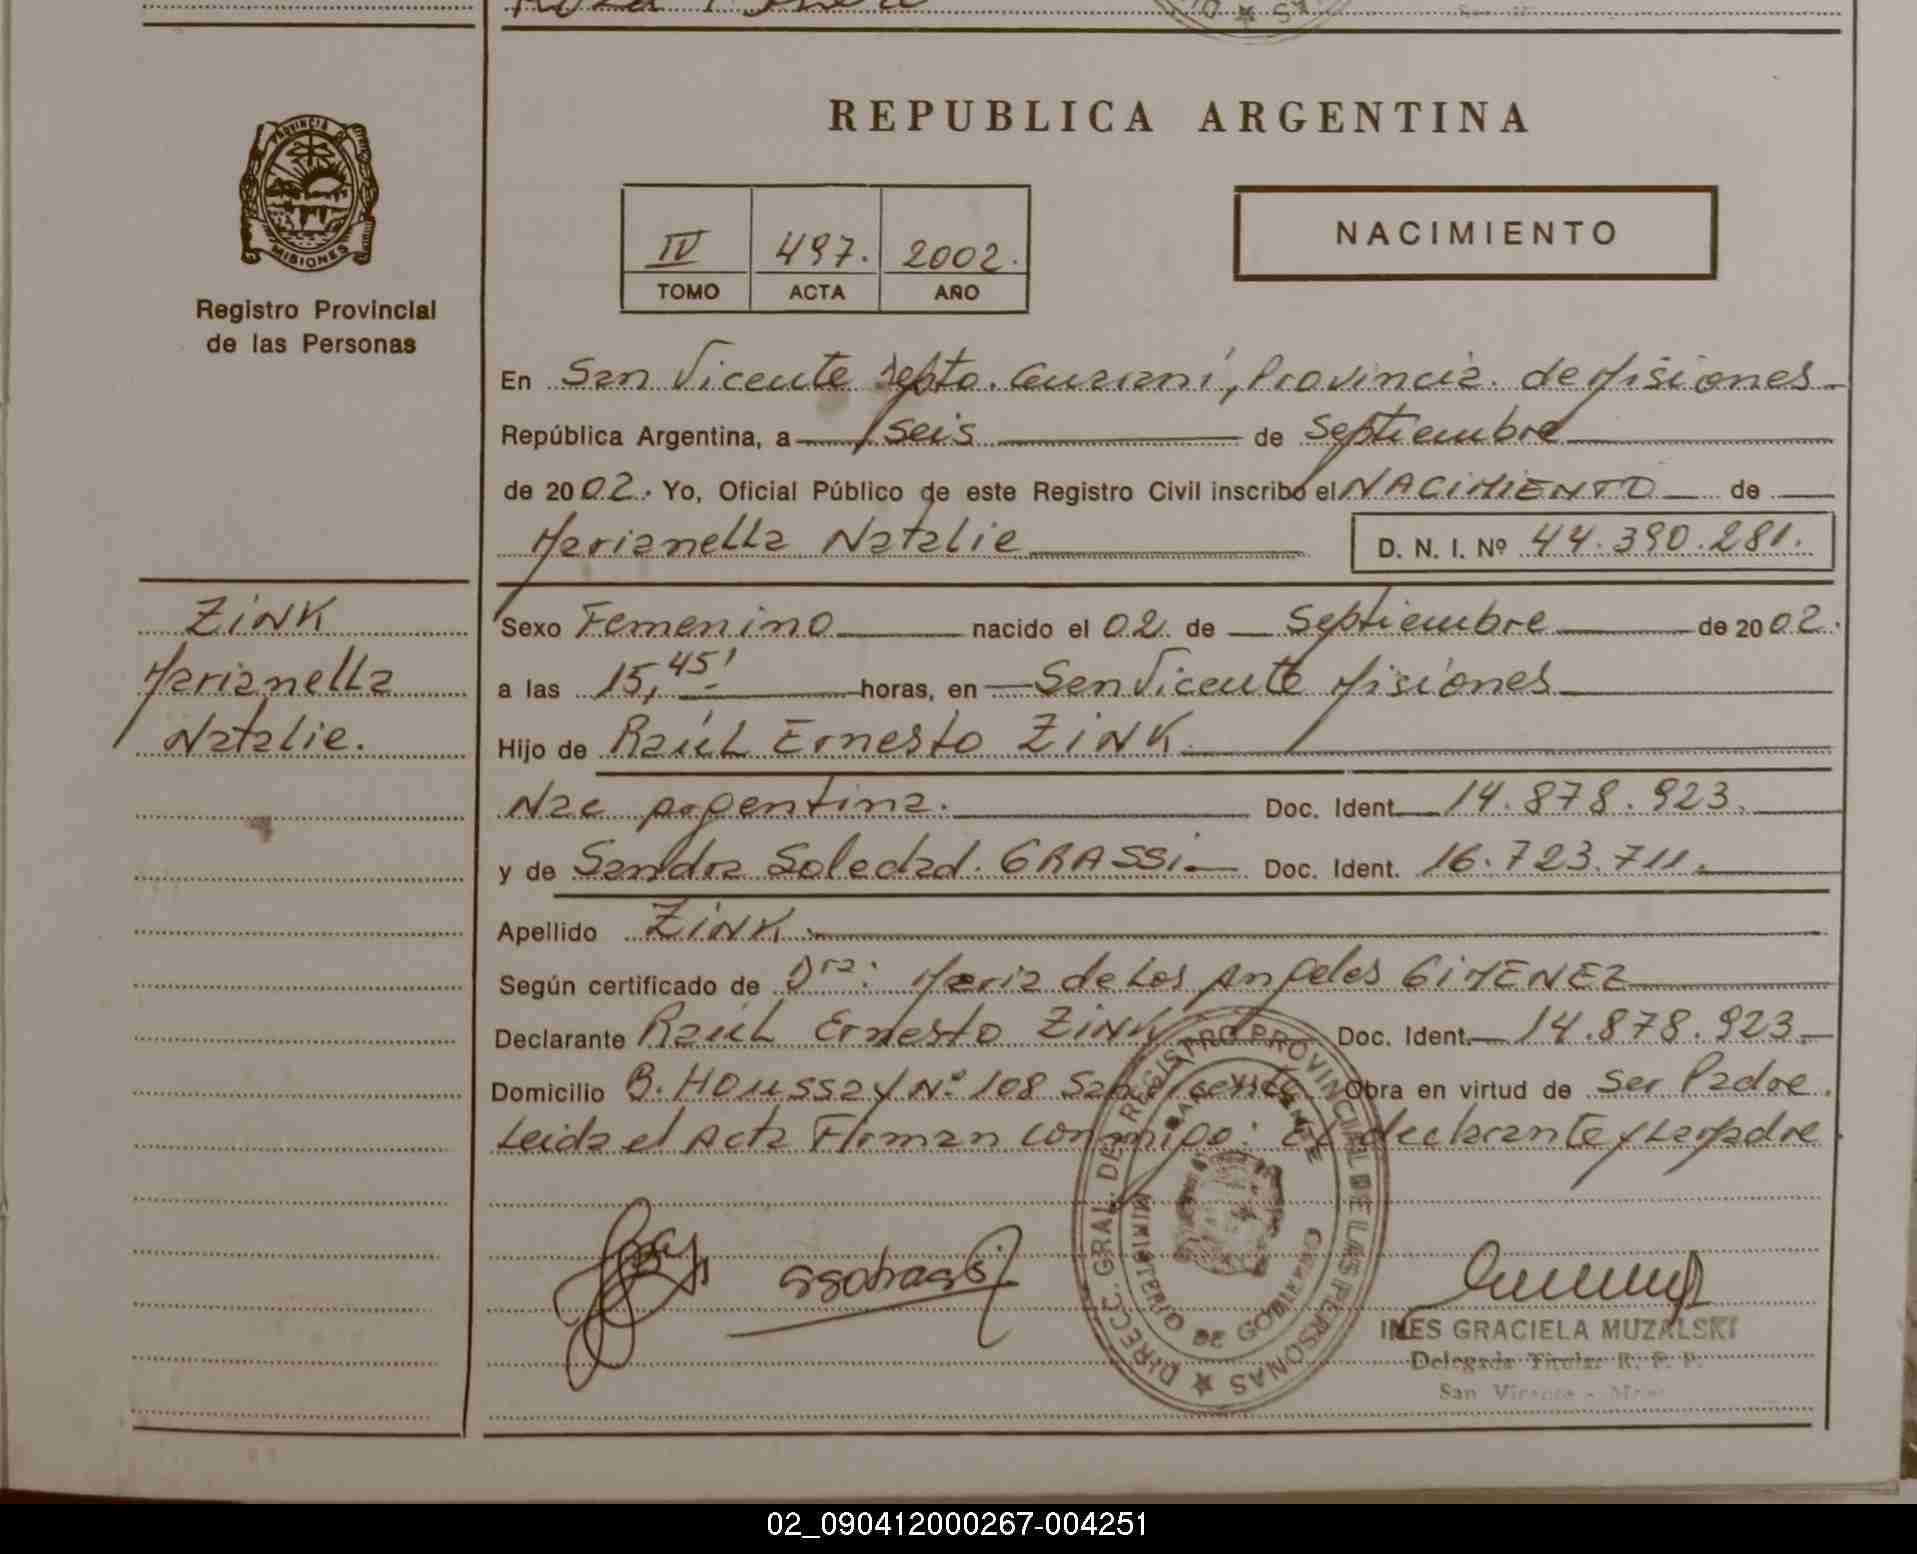 PROVINCIA DE
MISIONES
Registro Provincial
de las Personas
REPUBLICA ARGENTINA
IV 497. 2002.
TOMO ACTA AÑO
NACIMIENTO
En San Vicente Depto. Guaraní, Provincia de Misiones
República Argentina, a seis de Septiembre
de 2002. Yo, Oficial Público de este Registro Civil inscribo el NACIMIENTO de
Marianella Natalie D. N. I. Nº 44.390.281.
ZiNK
Marianella
Natalie.
Sexo Femenino nacido el 02 de Septiembre de 2002.
a las 15,45' horas, en San Vicente Misiones
Hijo de Raúl Ernesto ZiNK
Nac Argentina. Doc. Ident. 14.878.923.
y de Sandra Soledad. GRASSi Doc. Ident. 16.723.711.
Apellido ZiNK.
Según certificado de Dra: Maria de Los Angeles GiMENEZ
Declarante Raúl Ernesto ZiNK Doc. Ident. 14.878.923.
Domicilio B. Houssay Nº 108 San Vicente Obra en virtud de Ser Padre.
Leida el Acta Firman conmigo: El declarante y La Madre.
DIRECC. GRAL. DEL REGISTRO PROVINCIAL DE LAS PERSONAS
SAN VICENTE
MINISTERIO DE GOBIERNO
INES GRACIELA MUZALSKI
Delegada Titular R. P. P.
San Vicente - Mnes
02_090412000267-004251